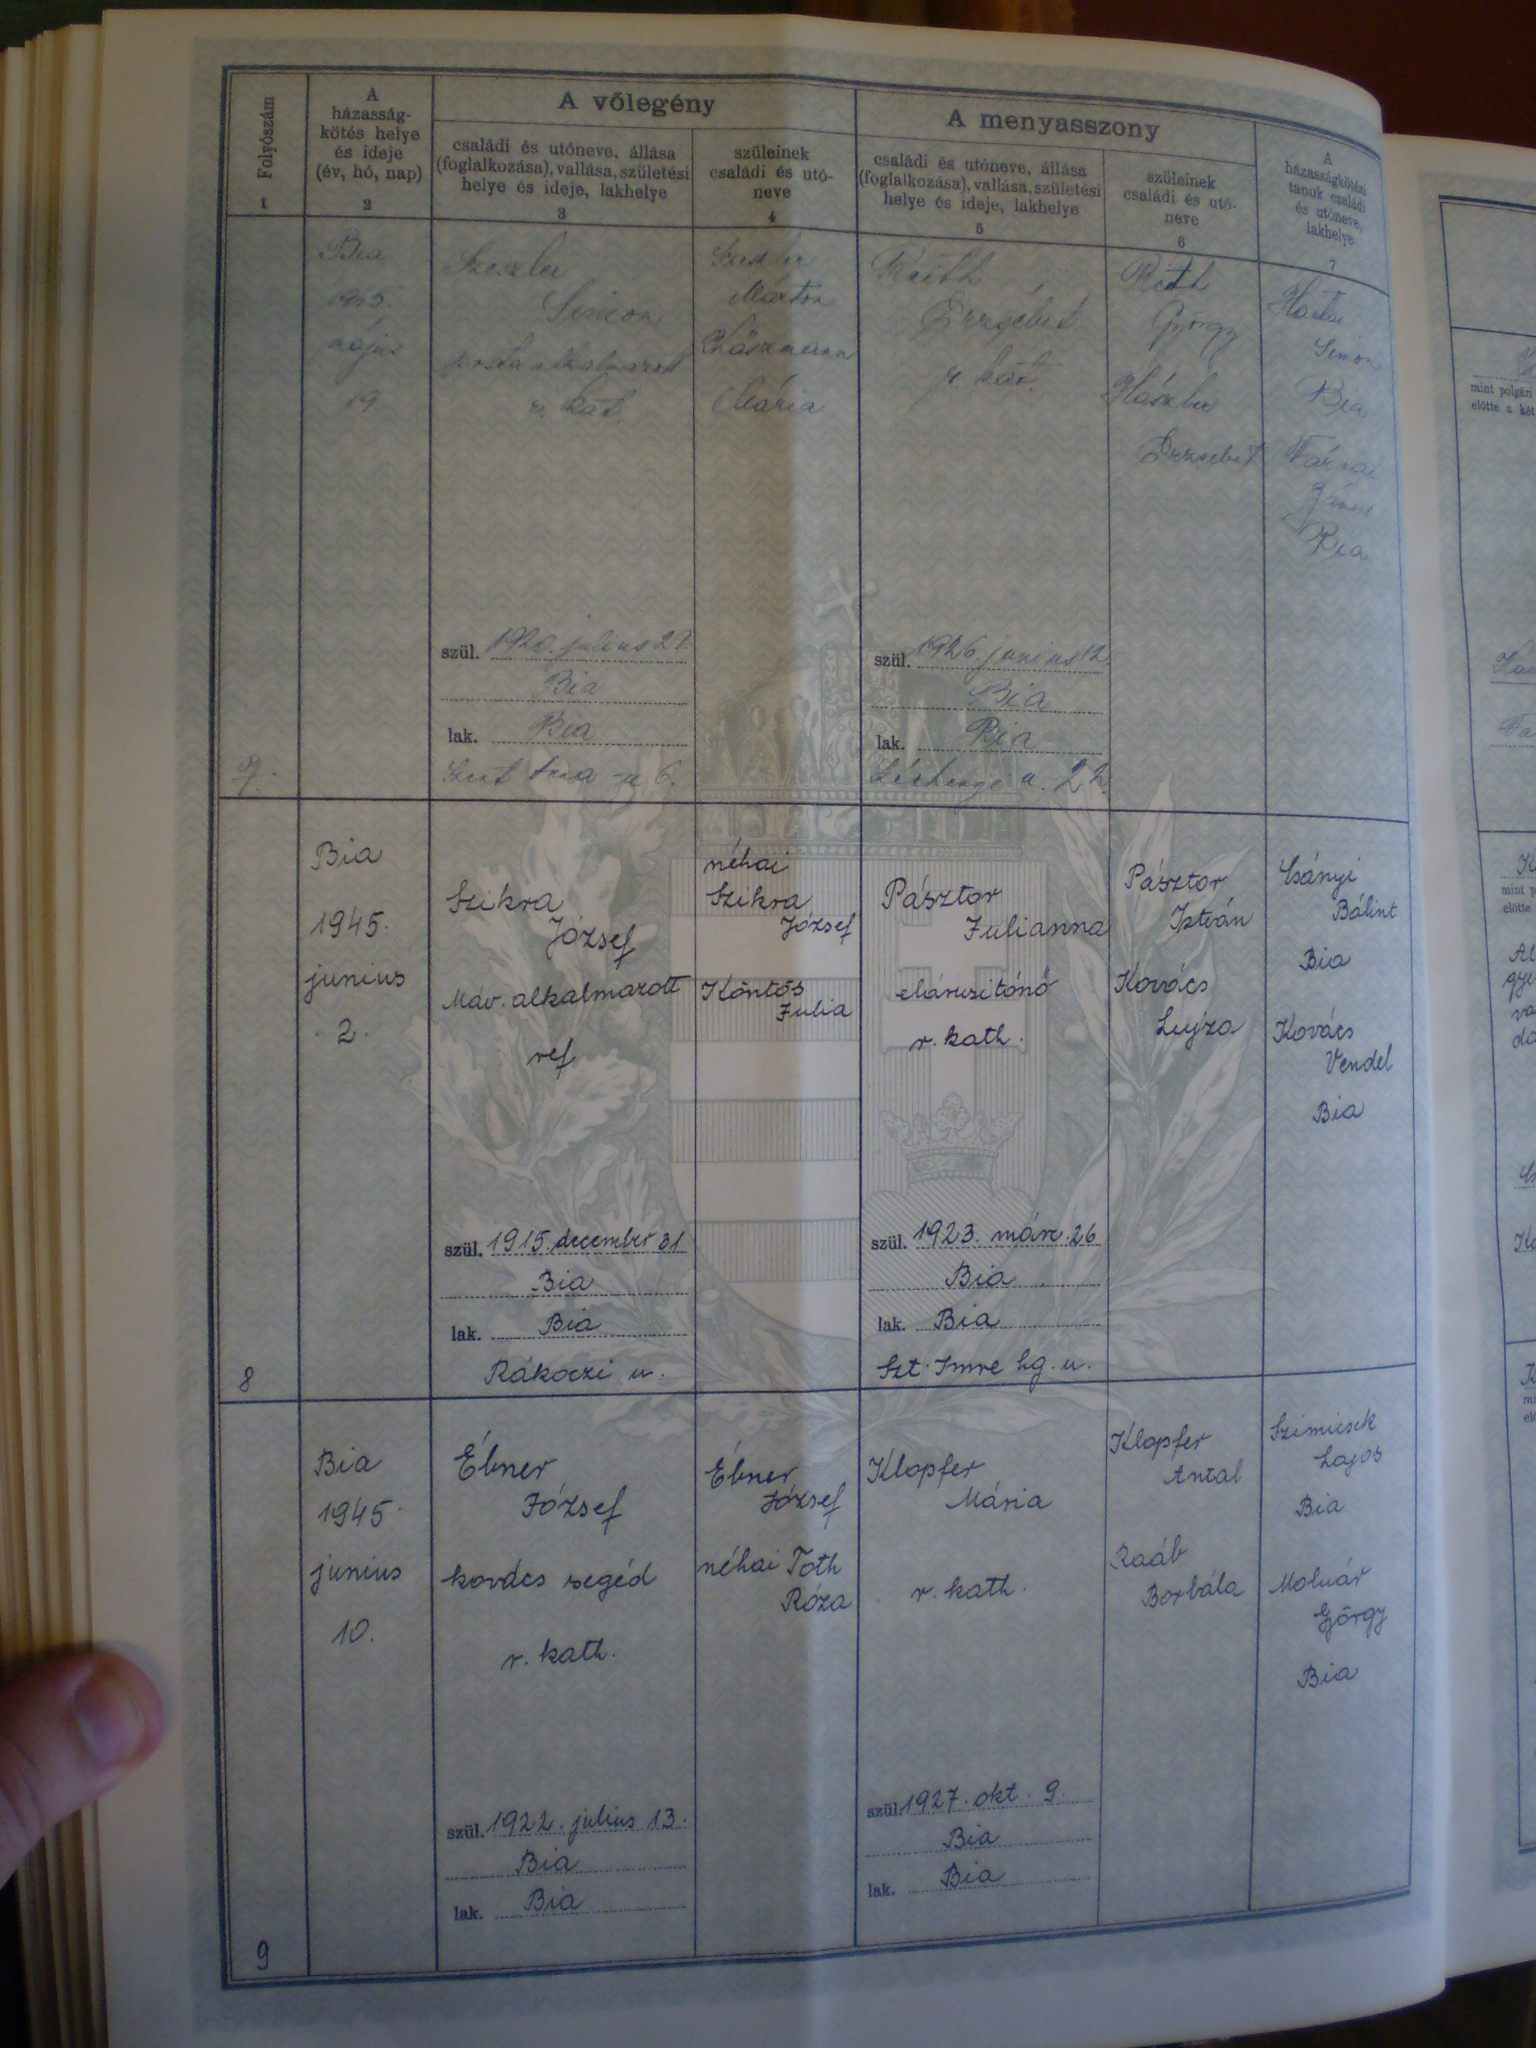 Folyószám
1
A
házasság-
kötés helye
és ideje
(év, hó, nap)
2
A vőlegény
családi és utóneve, állása
(foglalkozása), vallása, születési
helye és ideje, lakhelye
3
szüleinek
családi és utó-
neve
4
A menyasszony
családi és utóneve, állása
(foglalkozása), vallása, születési
helye és ideje, lakhelye
5
szüleinek
családi és utó-
neve
6
A
házasságkötési
tanuk családi
és utóneve,
lakhelye
7
7.
Bia
1945.
május
19
Szeszler
Simon
posta alkalmazott
r. kat.
szül. 1920. julius 27.
Bia
lak. Bia
6.
Szeszler
Márton
Mária
Erzsébet
r. kat.
szül. 1926. junius 12.
Bia
lak. Bia
u. 22.
György
Erzsebet
Simon
Bia
Várnai
János
Bia
8
Bia
1945.
junius
2.
Szikra
József
Máv. alkalmazott
ref
szül. 1915. december 31
Bia
lak. Bia
Rákoczi u.
néhai
Szikra
József
Köntös
Julia
Pásztor
Julianna
elárusitónő
r. kath.
szül. 1923. márc. 26
Bia
lak. Bia
Szt. Imre hg. u.
Pásztor
István
Kovács
Lujza
Csányi
Bálint
Bia
Kovács
Vendel
Bia
9
Bia
1945.
junius
10.
Ébner
József
kovács segéd
r. kath.
szül. 1922. julius 13.
Bia
lak. Bia
Ébner
József
néhai Tóth
Róza
Klopfer
Mária
r. kath.
szül. 1927. okt. 9.
Bia
lak. Bia
Klopfer
Antal
Raáb
Borbála
Szimicsek
Lajos
Bia
Molnár
György
Bia
mint polgári
előtte a két